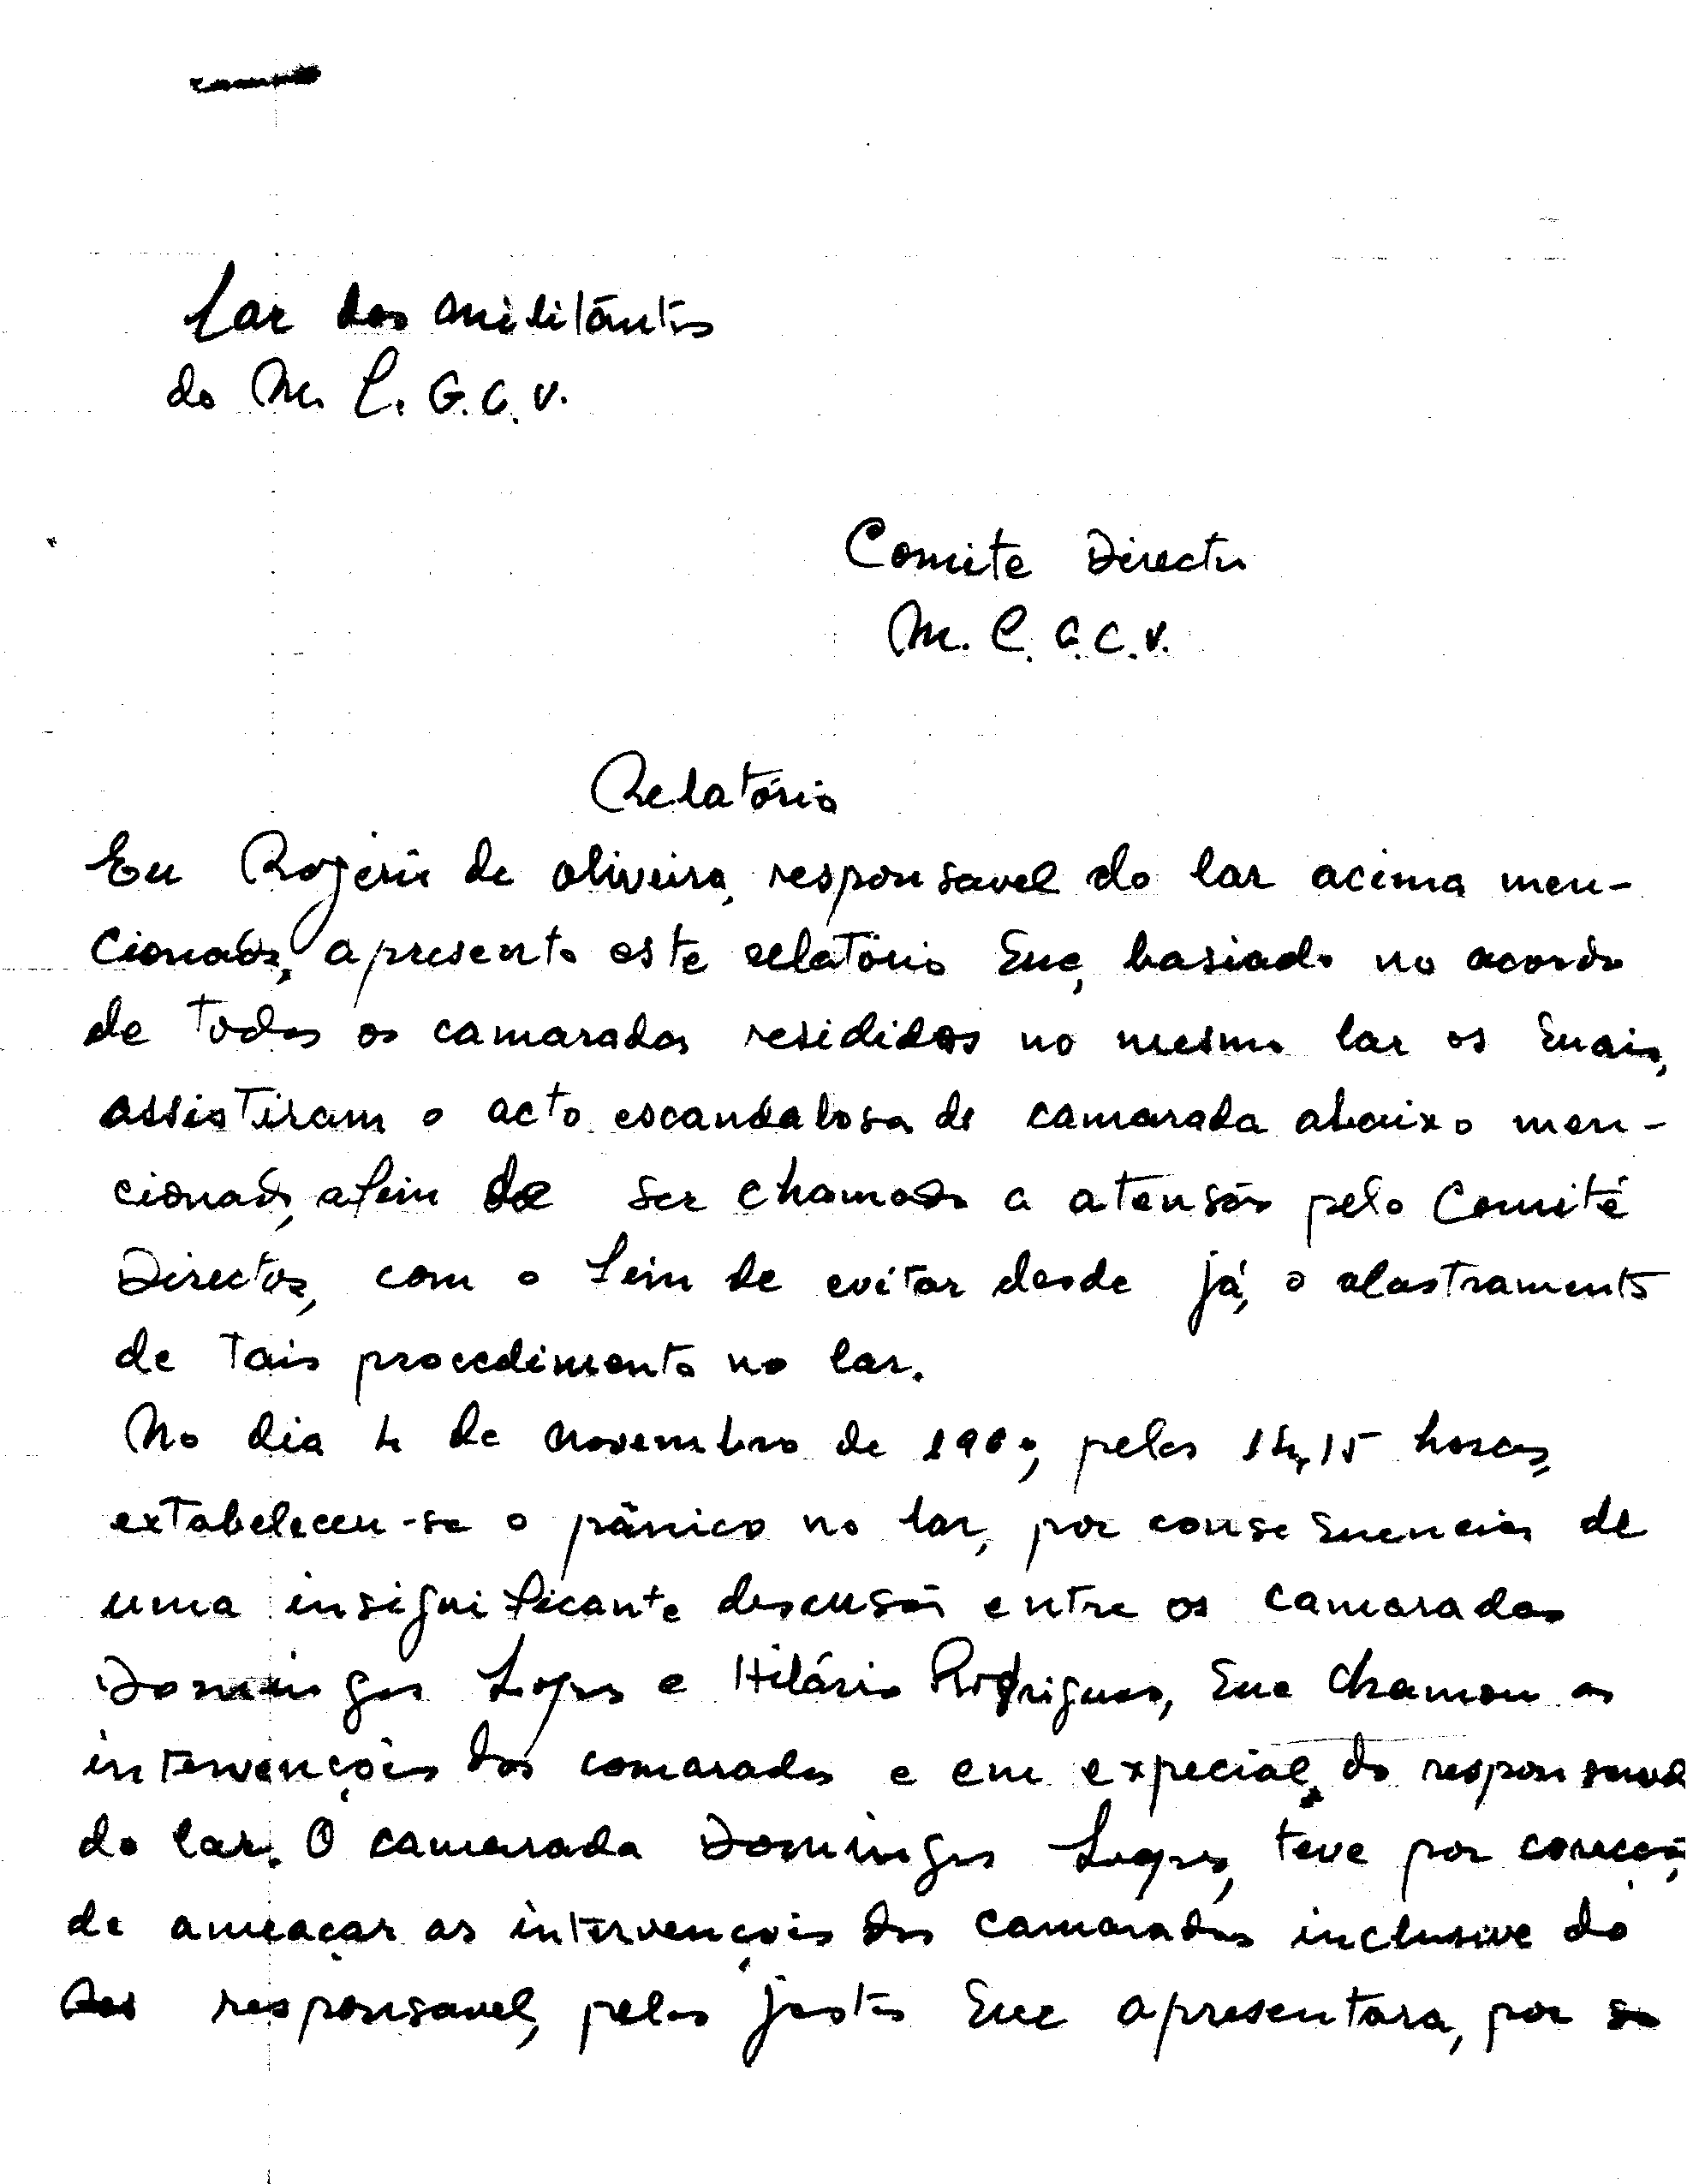 Lar dos militântes
do M. L. G. C. V.
Comite Director
M. L. G. C. V.
Relatório
Eu Rogerio de oliveira, responsavel do lar acima men-
cionado, apresento este relatório que, basiado no acordo
de todos os camaradas resididos no mesmo lar os quais,
assistiram o acto escandaloso de camarada abaixo men-
cionado, afim de ser chamado a atensão pelo Comité
Director, com o fim de evitar desde já, o alastramento
de tais procedimento no lar.
No dia 4 de novembro de 1960, pelas 14,15 horas,
extabeleceu-se o pânico no lar, por consequencias de
uma insignificante descusão entre os camaradas
Domingos Lopes e Hilário Rodrigues, que chamou as
intervenções dos camaradas e em expecial, do responsavel
do lar. O camarada Domingos Lopes, teve por
de ameaçar as intervençois dos camaradas inclusive do
responsavel, pelos jestos que apresentara, por